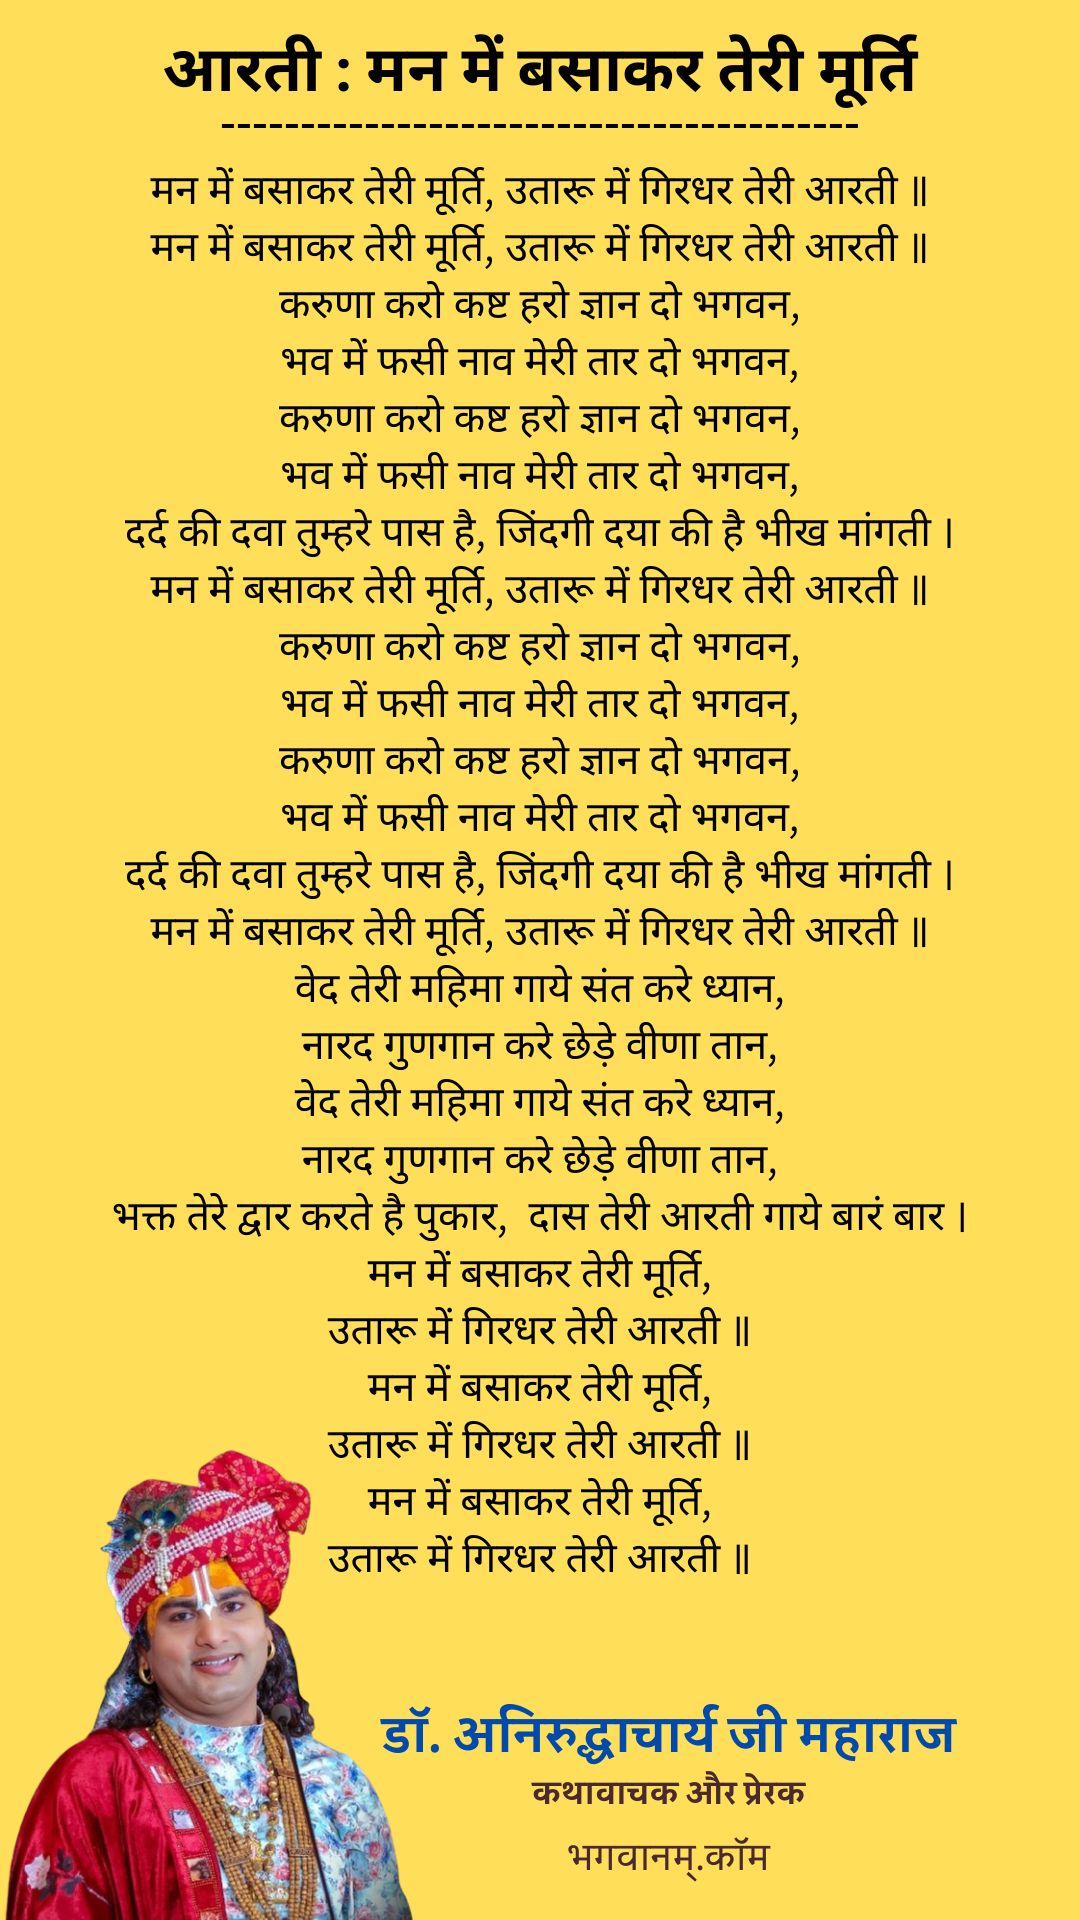 आरती : मन में बसाकर तेरी मूर्ति
----------------------------------------
मन में बसाकर तेरी मूर्ति, उतारू में गिरधर तेरी आरती ॥
मन में बसाकर तेरी मूर्ति, उतारू में गिरधर तेरी आरती ॥
करुणा करो कष्ट हरो ज्ञान दो भगवन,
भव में फसी नाव मेरी तार दो भगवन,
करुणा करो कष्ट हरो ज्ञान दो भगवन,
भव में फसी नाव मेरी तार दो भगवन,
दर्द की दवा तुम्हरे पास है, जिंदगी दया की है भीख मांगती ।
मन में बसाकर तेरी मूर्ति, उतारू में गिरधर तेरी आरती ॥
करुणा करो कष्ट हरो ज्ञान दो भगवन,
भव में फसी नाव मेरी तार दो भगवन,
करुणा करो कष्ट हरो ज्ञान दो भगवन,
भव में फसी नाव मेरी तार दो भगवन,
दर्द की दवा तुम्हरे पास है, जिंदगी दया की है भीख मांगती ।
मन में बसाकर तेरी मूर्ति, उतारू में गिरधर तेरी आरती ॥
वेद तेरी महिमा गाये संत करे ध्यान,
नारद गुणगान करे छेड़े वीणा तान,
वेद तेरी महिमा गाये संत करे ध्यान,
नारद गुणगान करे छेड़े वीणा तान,
भक्त तेरे द्वार करते है पुकार, दास तेरी आरती गाये बारं बार ।
मन में बसाकर तेरी मूर्ति,
उतारू में गिरधर तेरी आरती ॥
मन में बसाकर तेरी मूर्ति,
उतारू में गिरधर तेरी आरती ॥
मन में बसाकर तेरी मूर्ति,
उतारू में गिरधर तेरी आरती ॥
डॉ. अनिरुद्धाचार्य जी महाराज
कथावाचक और प्रेरक
भगवानम्.कॉम